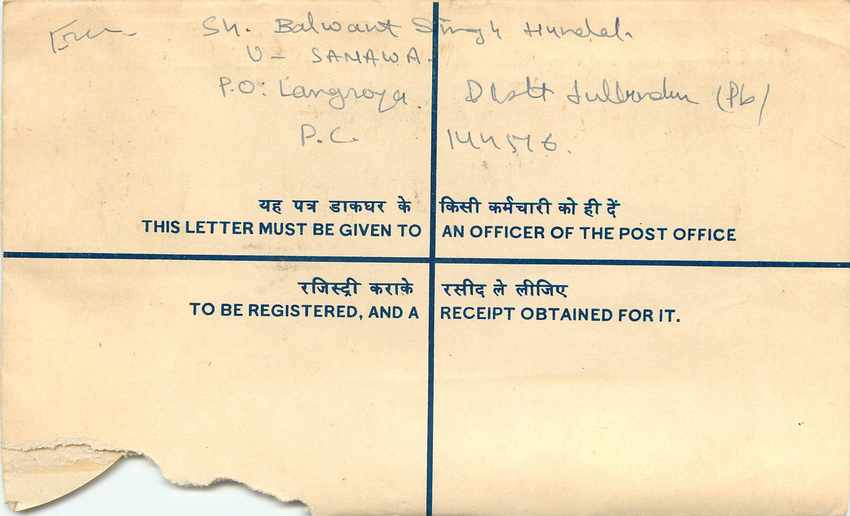 From Sh. Balwant Singh Hundal.
V - SANAWA.
P.O: Langroya. Distt Jullundur (Pb)
P.C. 144516.
यह पत्र डाकघर के किसी कर्मचारी को ही दें
THIS LETTER MUST BE GIVEN TO AN OFFICER OF THE POST OFFICE
रजिस्ट्री कराके रसीद ले लीजिए
TO BE REGISTERED, AND A RECEIPT OBTAINED FOR IT.